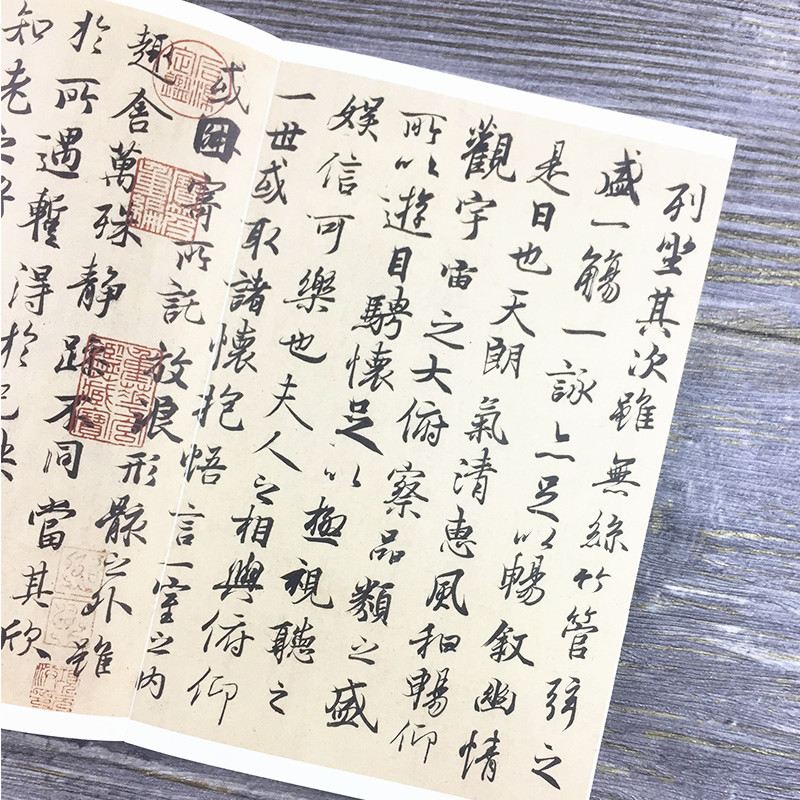 列坐其次雖無絲竹管弦之
盛一觴一詠亦足以暢敘幽情
是日也天朗氣清惠風和暢仰
觀宇宙之大俯察品類之盛
所以遊目騁懷足以極視聽之
娛信可樂也夫人之相與俯仰
一世或取諸懷抱悟言一室之內
或因寄所託放浪形骸之外雖
趣舍萬殊靜躁不同當其欣
於所遇暫得於己
知老之